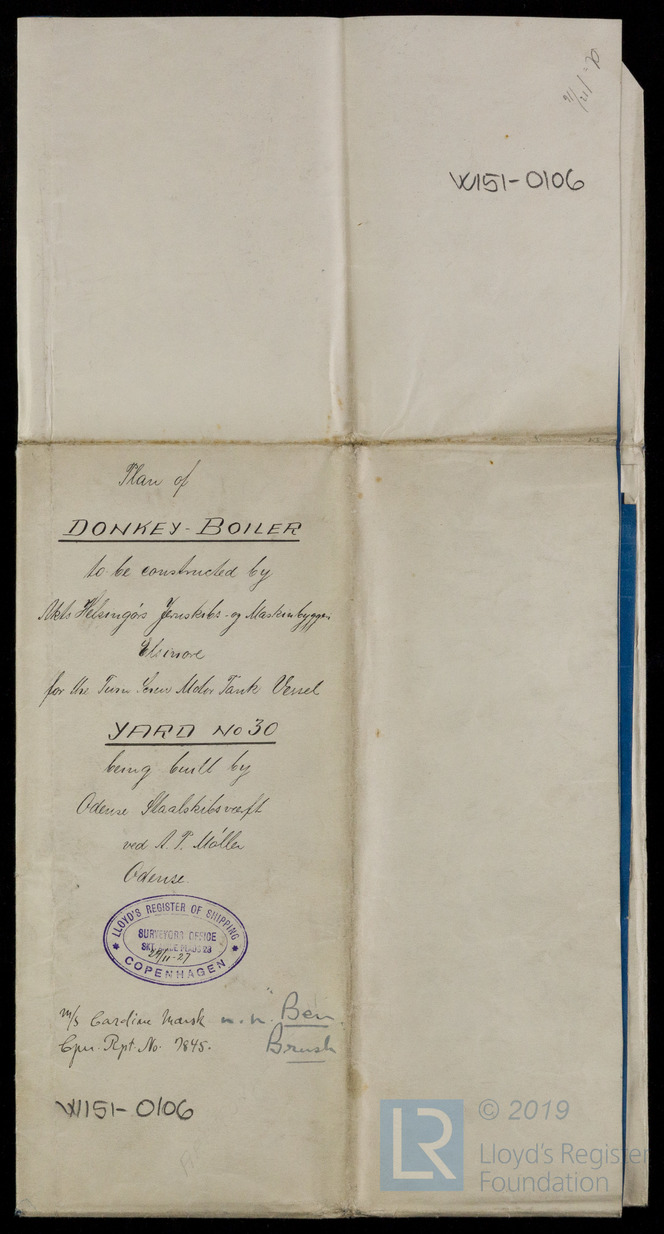 W151-0106
Plan of
DONKEY-BOILER
to be constructed by
Akts Helsingörs Jernskibs- og Maskinbyggeri
Elsinore
for the Twin Screw Motor Tank Vessel
YARD No 30
being built by
Odense Staalskibsværft
ved A. P. Möller
Odense.
LLOYD'S REGISTER OF SHIPPING
SURVEYORS OFFICE
PLADS 23
29/11-27
COPENHAGEN
m/s Caroline Mærsk n. n. "Ben
Cpn. Rpt. No. 7845. Brush
W151-0106
LR © 2019
Lloyd's Register
Foundation